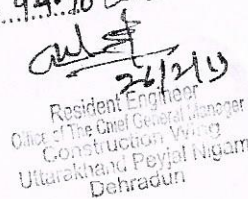 26/2/19
Resident Engineer
Office of The Chief General Manager
Construction Wing
Uttarakhand Peyjal Nigam
Dehradun